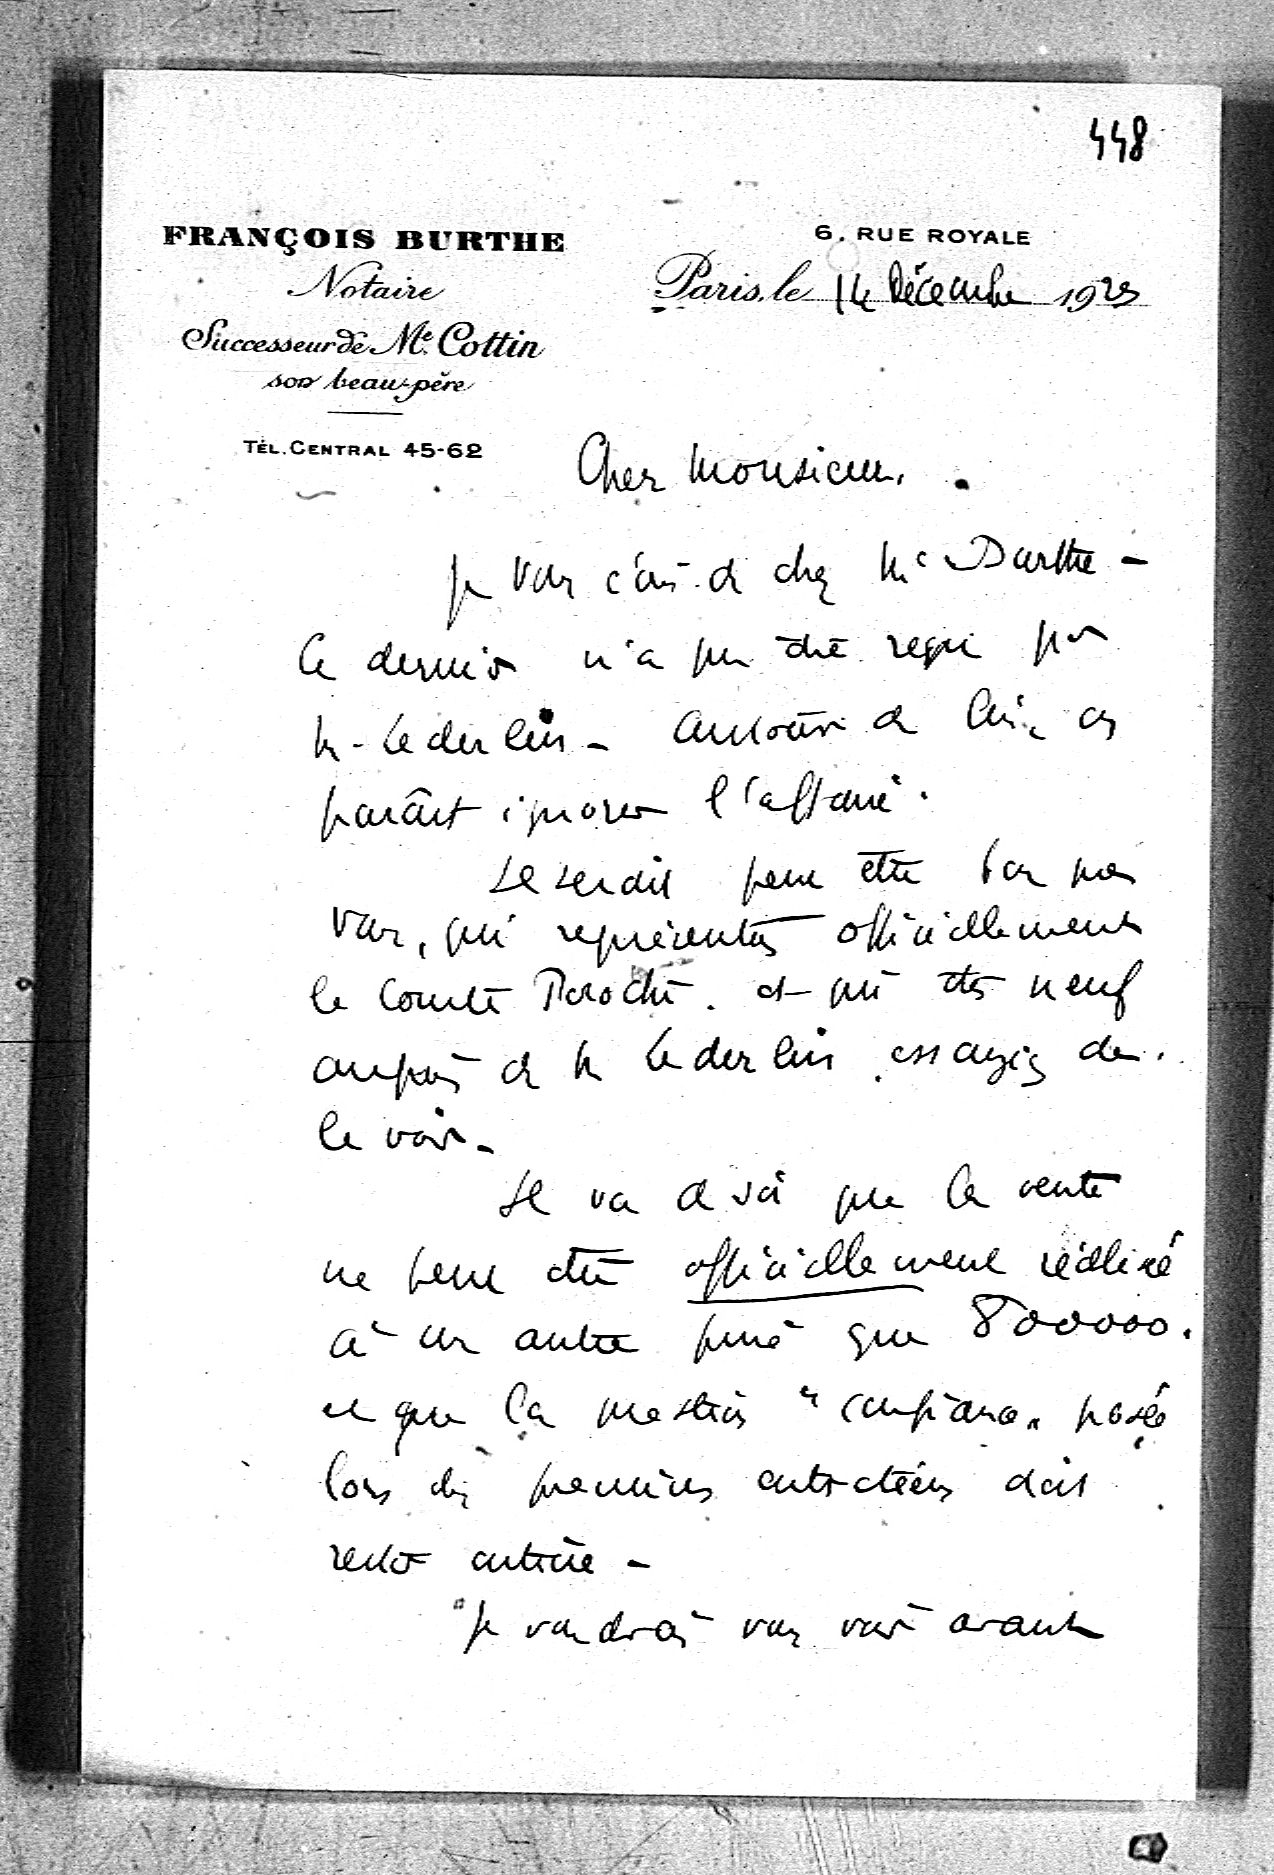 448
FRANÇOIS BURTHE
Notaire
Successeur de Me. Cottin
son beau-père
TÉL. CENTRAL 45-62
6. RUE ROYALE
Paris, le 14 Décembre 1923
Cher Monsieur,
Je vous écris de chez Me Burthe –
Ce dernier n'a pu être reçu par
M. Lederlin – Autour de lui, on
paraît ignorer l'affaire.
Il serait peut être bon que
vous, qui représentez officiellement
le Comte et qui êtes neuf
auprès de M Lederlin essayiez de
le voir –
Il va de soi que la vente
ne peut être officiellement réalisée
à un autre prix que 800000.
et que la question "confiance" posée
lors des premiers entretiens doit
rester entière –
Je voudrais vous voir avant